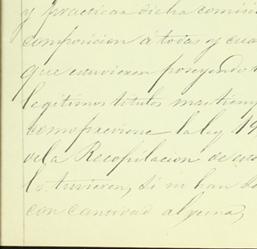 y practicar dicha comisi
composicion á todas y cua
que estuvieren poseyendo
legitimos titulos mas tiemp
como previene la ley 19
de la Recopilacion de
lo tuvieren, si no han
con cantidad alguna,